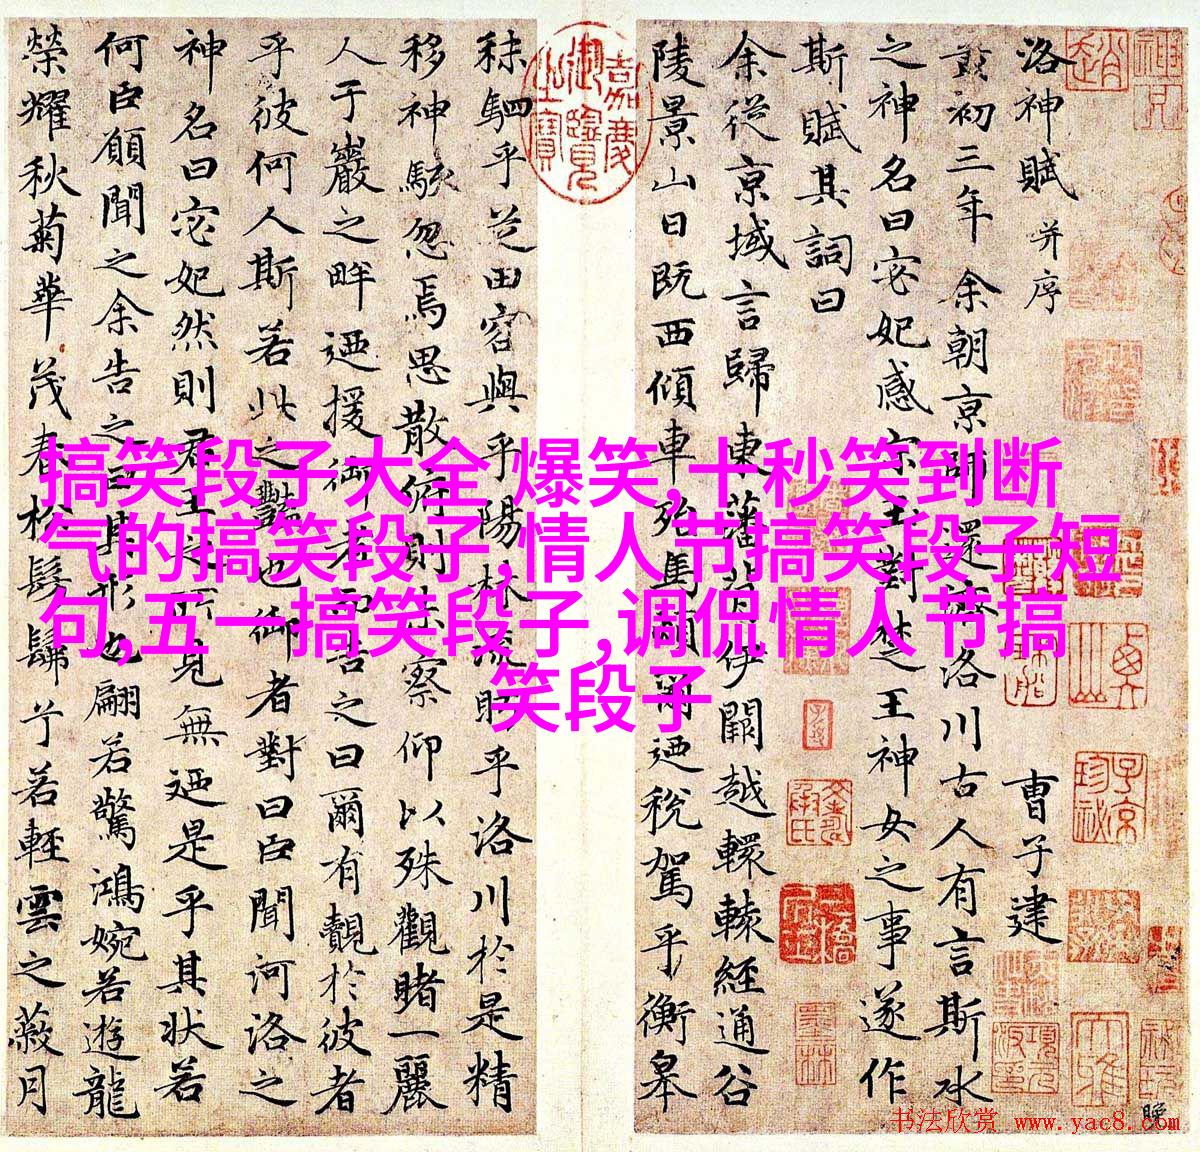 洛神賦 并序
曹子建
黄初三年余朝京師還濟洛川古人有言斯水
之神名曰宓妃感宋玉對楚王神女之事遂作
斯賦其詞曰
余從京域言歸東藩背伊闕越轘轅經通谷
陵景山日既西傾車殆馬煩爾迺稅駕乎衡皋
秣駟乎芝田容與乎陽林流眄乎洛川於是精
移神駭忽焉思散俯則未察仰以殊觀睹一麗
人于巖之畔迺援御者而告之曰爾有覿於彼者
乎彼何人斯若此之豔也御者對曰臣聞河洛之
神名曰宓妃然則君王之所見無迺是乎其狀若
何臣願聞之余告之曰其形也翩若驚鴻婉若遊龍
榮耀秋菊華茂春松髣髴兮若輕雲之蔽月
嘉慶御覽之寶
搞笑段子大全 爆笑,十秒笑到断
气的搞笑段子,情人节搞笑段子短
句,五一搞笑段子,调侃情人节搞
笑段子
书法欣赏 www.yac8.com